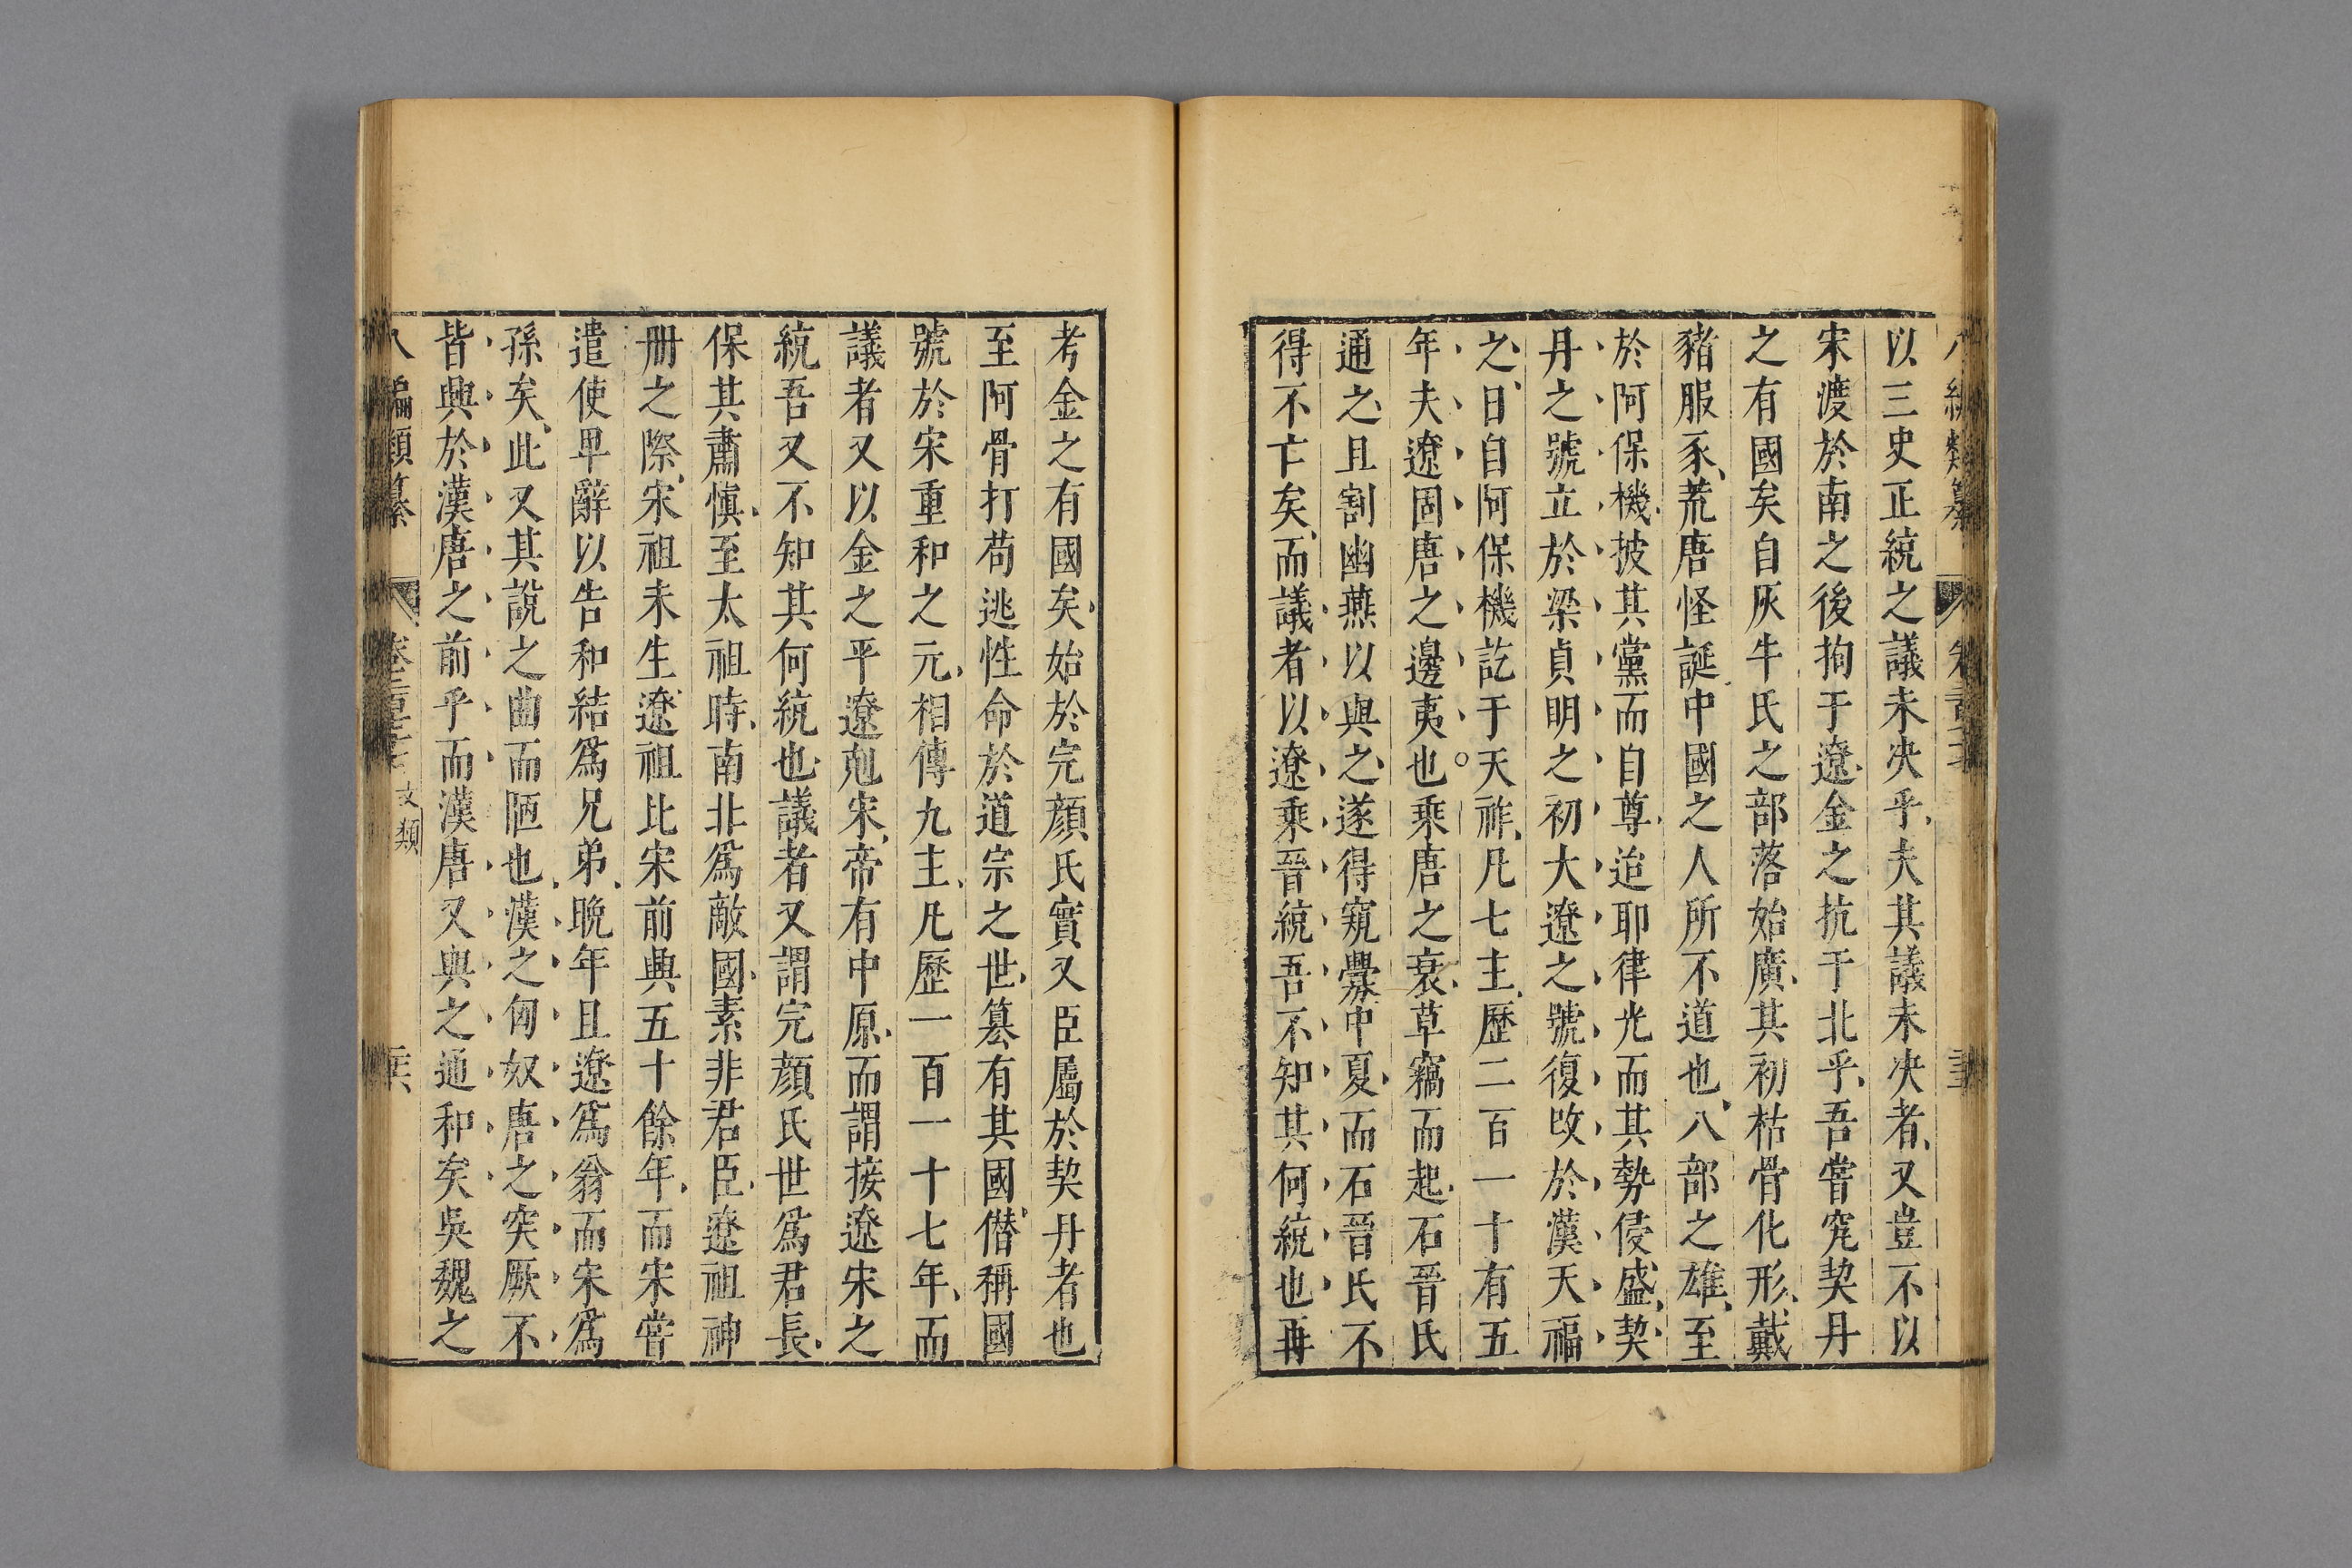 以三史正統之議未决乎夫其議未决者又豈不以
宋渡於南之後拘于遼金之抗于北乎吾嘗究契丹
之有國矣自灰牛氏之部落始廣其初枯骨化形戴
豬服豕荒唐怪誕中國之人所不道也八部之雄至
於阿保機披其黨而自尊迨耶律光而其勢侵盛契
丹之號立於梁貞明之初大遼之號復改於漢天福
之日自阿保機訖于天祚凡七主歷二百一十有五
年夫遼固唐之邊夷也乘唐之衰草竊而起石晉氏
通之且割幽燕以與之遂得窺釁中夏而石晉氏不
得不亡矣而議者以遼乘晉統吾不知其何統也再
考金之有國矣始於完顏氏實又臣屬於契丹者也
至阿骨打苟逃性命於道宗之世篡有其國僣稱國
號於宋重和之元相傳九主凡歷一百一十七年而
議者又以金之平遼剋宋帝有中原而謂接遼宋之
統吾又不知其何統也議者又謂完顏氏世爲君長
保其肅慎至太祖時南北爲敵國素非君臣遼祖神
册之際宋祖未生遼祖比宋前興五十餘年而宋嘗
遣使卑辭以告和結爲兄弟晚年且遼爲翁而宋爲
孫矣此又其說之曲而陋也漢之匈奴唐之突厥不
皆興於漢唐之前乎而漢唐又與之通和矣吳魏之
八編類纂
文類